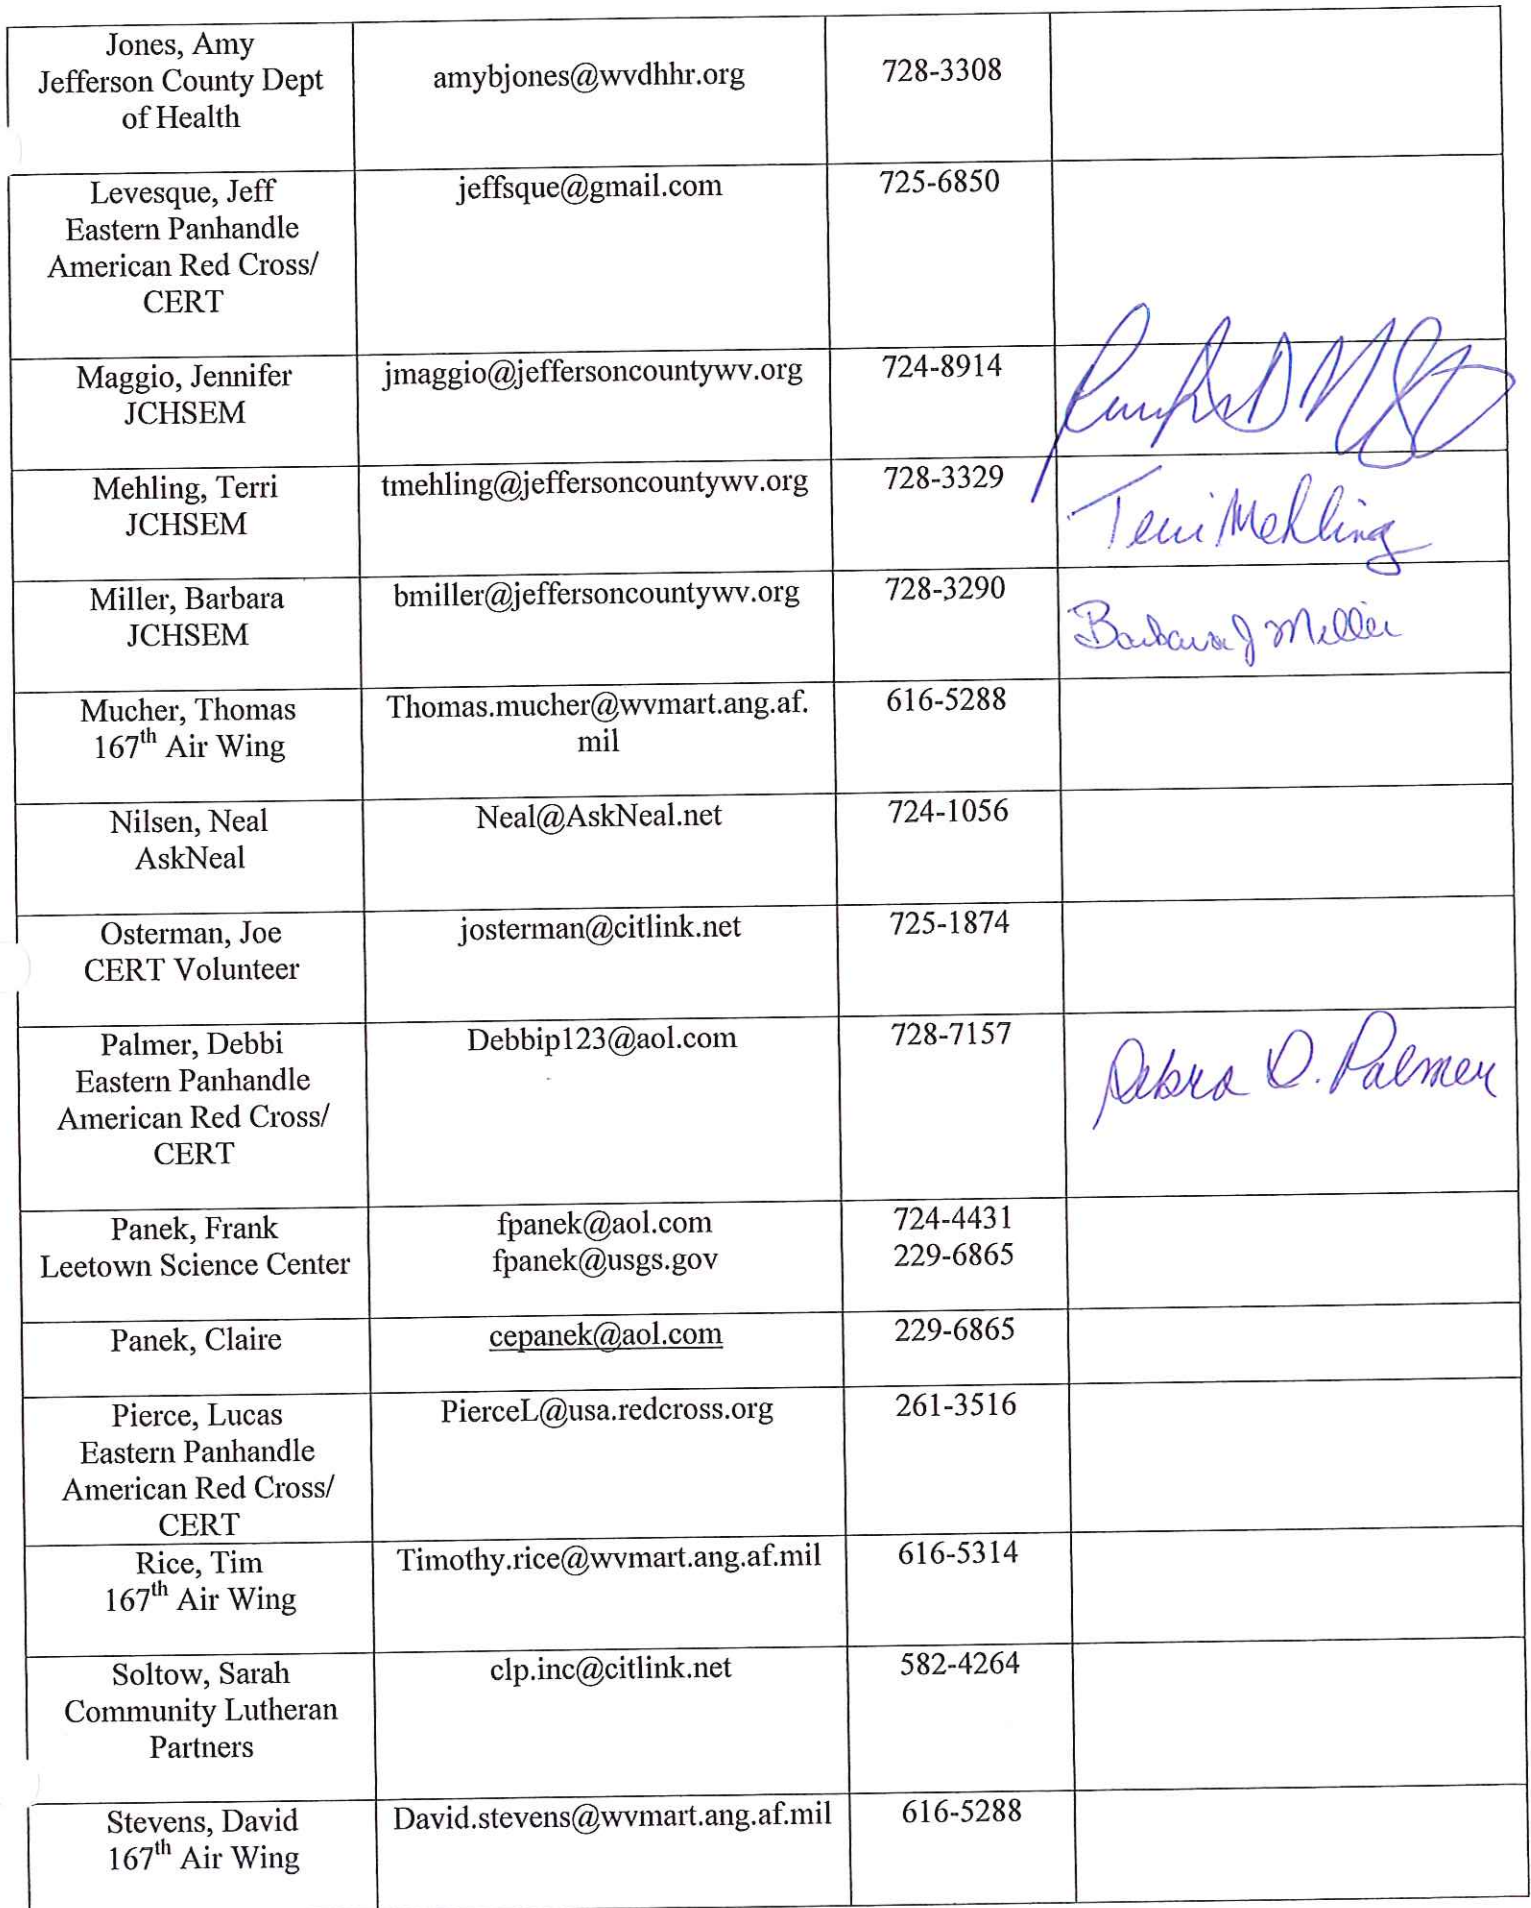 Jones, Amy
Jefferson County Dept
of Health
amybjones@wvdhhr.org
728-3308
Levesque, Jeff
Eastern Panhandle
American Red Cross/
CERT
jeffsque@gmail.com
725-6850
Maggio, Jennifer
JCHSEM
jmaggio@jeffersoncountywv.org
724-8914
Mehling, Terri
JCHSEM
tmehling@jeffersoncountywv.org
728-3329
Terri Mehling
Miller, Barbara
JCHSEM
bmiller@jeffersoncountywv.org
728-3290
Barbara J Miller
Mucher, Thomas
167th Air Wing
Thomas.mucher@wvmart.ang.af.
mil
616-5288
Nilsen, Neal
AskNeal
Neal@AskNeal.net
724-1056
Osterman, Joe
CERT Volunteer
josterman@citlink.net
725-1874
Palmer, Debbi
Eastern Panhandle
American Red Cross/
CERT
Debbip123@aol.com
728-7157
Debra D. Palmer
Panek, Frank
Leetown Science Center
fpanek@aol.com
fpanek@usgs.gov
724-4431
229-6865
Panek, Claire
cepanek@aol.com
229-6865
Pierce, Lucas
Eastern Panhandle
American Red Cross/
CERT
PierceL@usa.redcross.org
261-3516
Rice, Tim
167th Air Wing
Timothy.rice@wvmart.ang.af.mil
616-5314
Soltow, Sarah
Community Lutheran
Partners
clp.inc@citlink.net
582-4264
Stevens, David
167th Air Wing
David.stevens@wvmart.ang.af.mil
616-5288